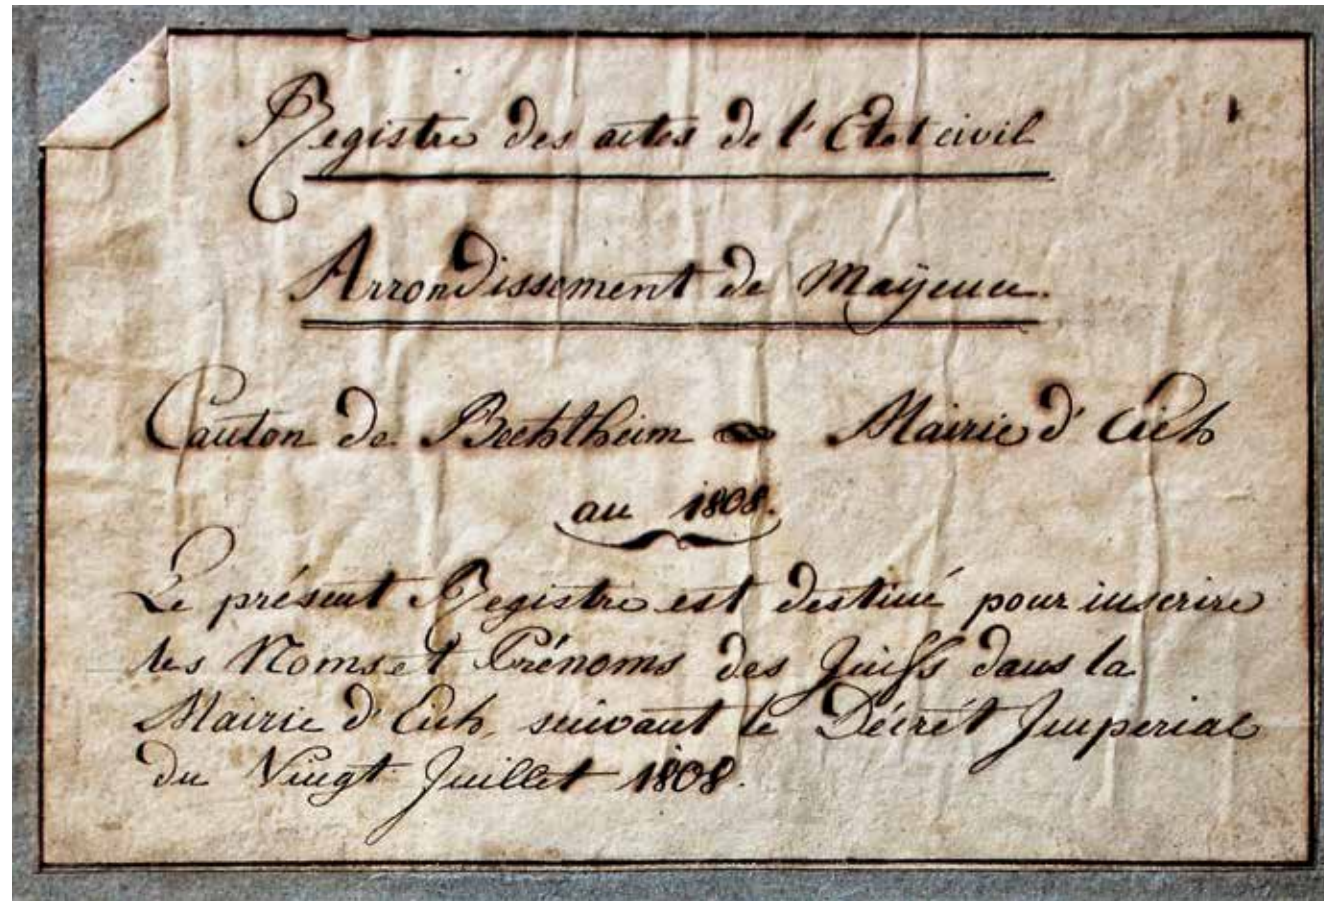 Registre des actes de l'Etat civil
Arrondissement de Mayence.
Canton de Bechtheim Mairie d'Eich
au 1808.
Le présent Registre est destiné pour inscrire
les Noms et Prénoms des Juifs dans la
Mairie d'Eich, suivant le Décrét Imperial
du Vingt Juillet 1808.